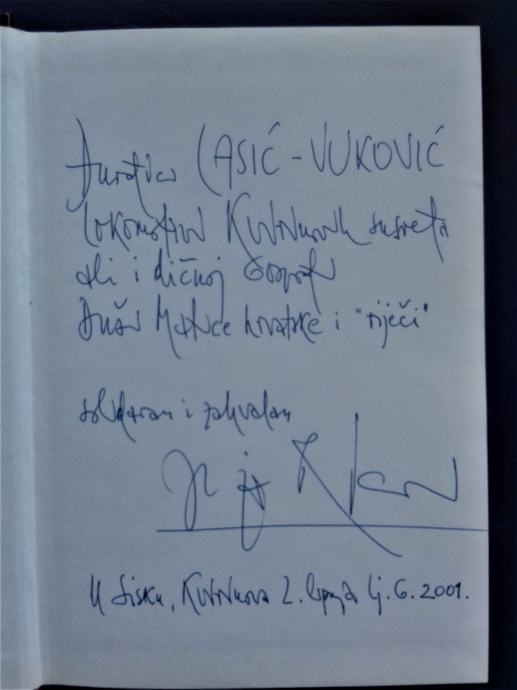 Đurđici LASIĆ-VUKOVIĆ
lokomotivi Kvirinovih susreta
ali i dičnoj gospođi
Duši Matice hrvatske i "riječi"
solidaran i zahvalan
U Sisku, Kvirinova 2. lipnja lj. G. 2001.